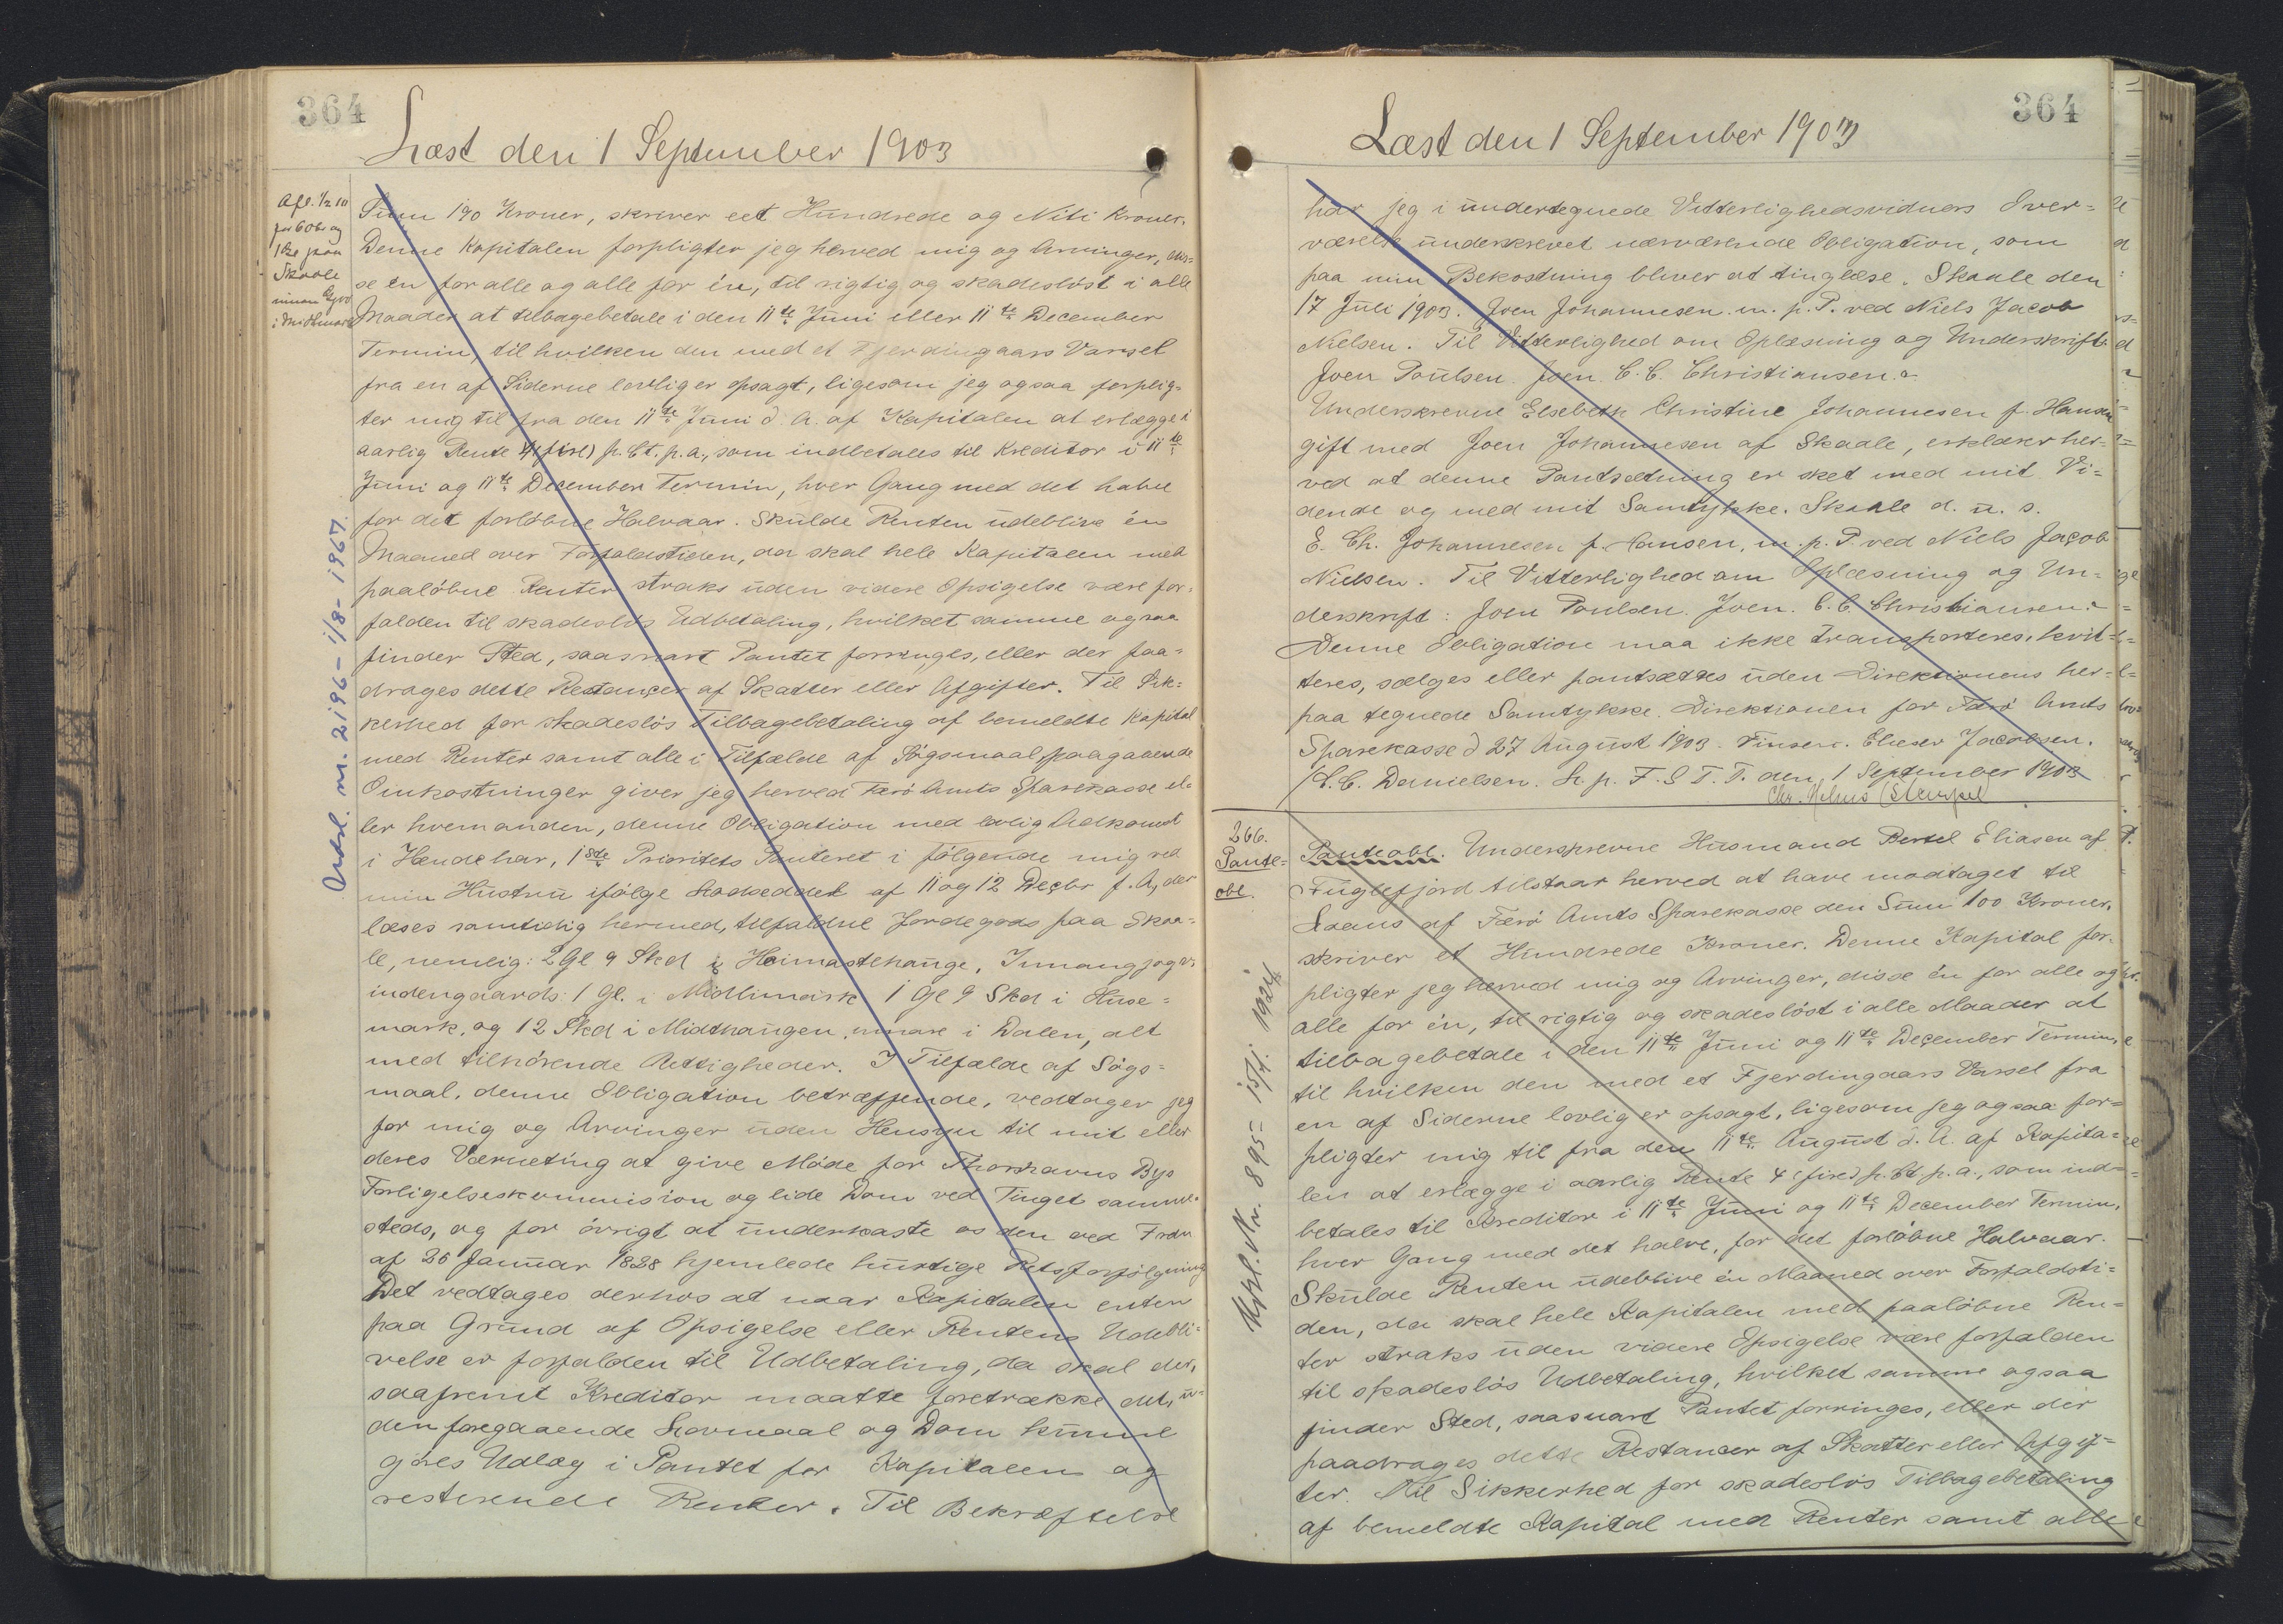 364
Læst den 1 September 1903
Afl. 1/2 10
for 60 Øre og
1 Kr. paa
Skaale
innan Gjro
i Midlimark
Sum 190 Kroner, skriver eet Hundrede og Niti Kroner.
Denne Kapitalen forpligter jeg herved mig og Arvinger, dis=
se én for alle og alle for én, til rigtig og skadesløst i alle
Maader at tilbagebetale i den 11te Juni eller 11te December
Termin, til hvilken den med et Fjerdingaars Varsel
fra en af Siderne lovlig er opsagt, ligesom jeg ogsaa forplig=
ter mig til fra den 11te Juni d. A. af Kapitalen at erlægge i
aarlig Rente 4 (fire) p. Ct. p. a., som indbetales til Kreditor i 11te
Juni og 11te December Termin, hver Gang med det halve
for det forløbne Halvaar. Skulde Renten udeblive én
Maaned over Forfaldstiden, da skal hele Kapitalen med
paaløbne Renter straks uden videre Opsigelse være for=
falden til skadesløs Udbetaling, hvilket samme ogsaa
finder Sted, saasnart Pantet forringes, eller der paa=
drages dette Restancer af Skatter eller Afgifter. Til Sik=
kerhed for skadesløs Tilbagebetaling af bemeldte Kapital
med Renter samt alle i Tilfælde af Søgsmaal paagaaende
Omkostninger giver jeg herved Færø Amts Sparekasse el=
ler hvemanden, denne Obligation med lovlig Adkomst
i Hænde har, 1ste Prioritets Panteret i følgende mig ved
min Hustru ifølge Lodseddel af 11 og 12 Decbr f. A., der
læses samtidig hermed, tilfaldne Jordegods paa Skaa=
le, nemlig: 2 Gl 9 Skd i Heimastehauge, Innangjogvs
indengaards: 1 Gl. i Midlimark 1 Gl 9 Skd i Huse=
mark, og 12 Skd i Midthaugen, innare i Dalen, alt
med tilhørende Rettigheder. I Tilfælde af Søgs=
maal, denne Obligation betræffende, vedtager jeg
for mig og Arvinger uden Hensyn til mit eller
deres Værneting at give Møde for Thorshavns Bys
Forligelseskommision og lide Dom ved Tinget samme=
steds, og for øvrigt at underkaste os den ved Frdn
af 25 Januar 1828 hjemlede hurtige Retsforfølgning
Det vedtages derhos at naar Kapitalen enten
paa Grund af Opsigelse eller Rentens Udebli=
velse er forfalden til Udbetaling, da skal der,
saafremt Kreditor maatte foretrække det, u=
den foregaaende Lovmaal og Dom kunne
gjøres Udlæg i Pantet for Kapitalen og
resterende Renter. Til Bekræftelse
Avlsl. nr. 2196 - 1/8- 1967.
364
Læst den 1 September 1903
har jeg i undertegnede Vitterlighedsvidners Over=
værelse underskrevet nærværende Obligation, som
paa min Bekostning bliver at tinglæse. Skaale den
17 Juli 1903. Joen Johannesen. m. p. P. ved Niels Jacob
Nielsen. Til Vitterlighed om Oplæsning og Underskrift
Joen Poulsen. Joen. C. C. Christiansen.
Underskrevne Elsebeth Christine Johannesen f. Hansen
gift med Joen Johannesen af Skaale, erklærer her=
ved at denne Pantsætning er sket med mit Vi=
dende og med mit Samtykke. Skaale d. u. s.
E. Ch. Johannesen f. Hansen, m. p. P. ved Niels Jacob
Nielsen. Til Vitterlighed om Oplæsning og Un=
derskrift: Joen Poulsen. Joen. C. C. Christiansen.
Denne Obligation maa ikke transporteres, kvit=
teres, sælges eller pantsættes uden Direktionens her=
paa tegnede Samtykke. Direktionen for Færø Amts
Sparekasse d 27 August 1903. Finsen. Elieser Jacobsen.
C. C. Danielsen. L. p. F. S T. T. den 1 September 1903
(Stempel)
266.
Pante=
obl.
Panteobl. Underskrevne Husmand Bertel Eliasen af
Fuglefjord tilstaar herved at have modtaget til
Laans af Færø Amts Sparekasse den Sum 100 Kroner,
skriver et Hundrede Kroner. Denne Kapital for=
pligter jeg herved mig og Arvinger, disse én for alle og
alle for én, til rigtig og skadesløst i alle Maader at
tilbagebetale i den 11te Juni og 11te December Termin,
til hvilken den med et Fjerdingaars Varsel fra
en af Siderne lovlig er opsagt, ligesom jeg ogsaa for=
pligter mig til fra den 11te August d. A. af Kapita=
len at erlægge i aarlig Rente 4 (fire) p. Ct. p. a., som ind=
betales til Kreditor i 11te Juni og 11te December Termin,
hver Gang med det halve, for det forløbne Halvaar.
Skulde Renten udeblive én Maaned over Forfaldsti=
den, da skal hele Kapitalen med paaløbne Ren=
ter straks uden videre Opsigelse være forfalden
til skadesløs Udbetaling, hvilket samme ogsaa
finder Sted, saasnart Pantet forringes, eller der
paadrages dette Restancer af Skatter eller Afgif=
ter. Til Sikkerhed for skadesløs Tilbagebetaling
af bemeldte Kapital med Renter samt alle
Nr. 895 - 15/4. 1924